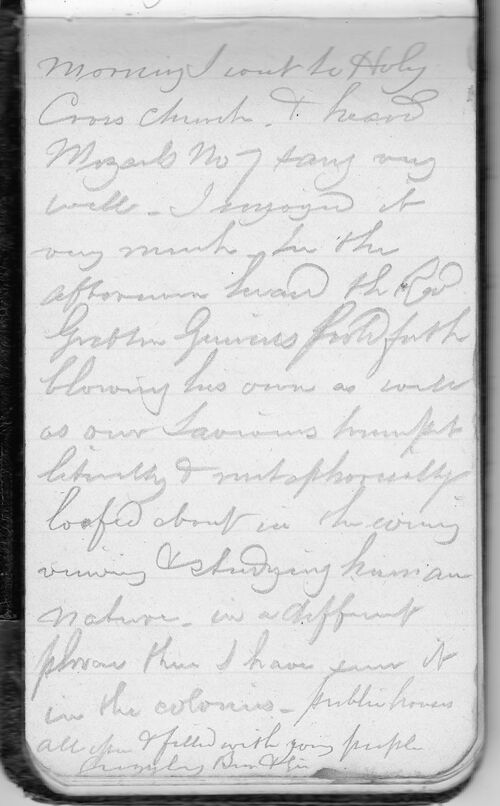 morning I went to Holy
Cross church. & heard
Mozarts No 7 sang very
well - I enjoyed it
very much. In the
afternoon heard the Rev
Grattan Guiness hold forth
blowing his own as well
as our Saviours trumpet
literally & metaphorically
loafed about in the evening
viewing & studying human
nature. in a different
phrase then I have seen it
in the colonies - public houses
all open & filled with young people
drinking Beer & Gin